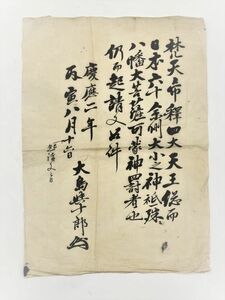 梵天帝釈四大天王惣而
日本六十余州大小之神祇殊
八幡大菩薩可蒙神罰者也
仍而起請文如件
慶應二年
丙寅八月十六日
大島 十郎